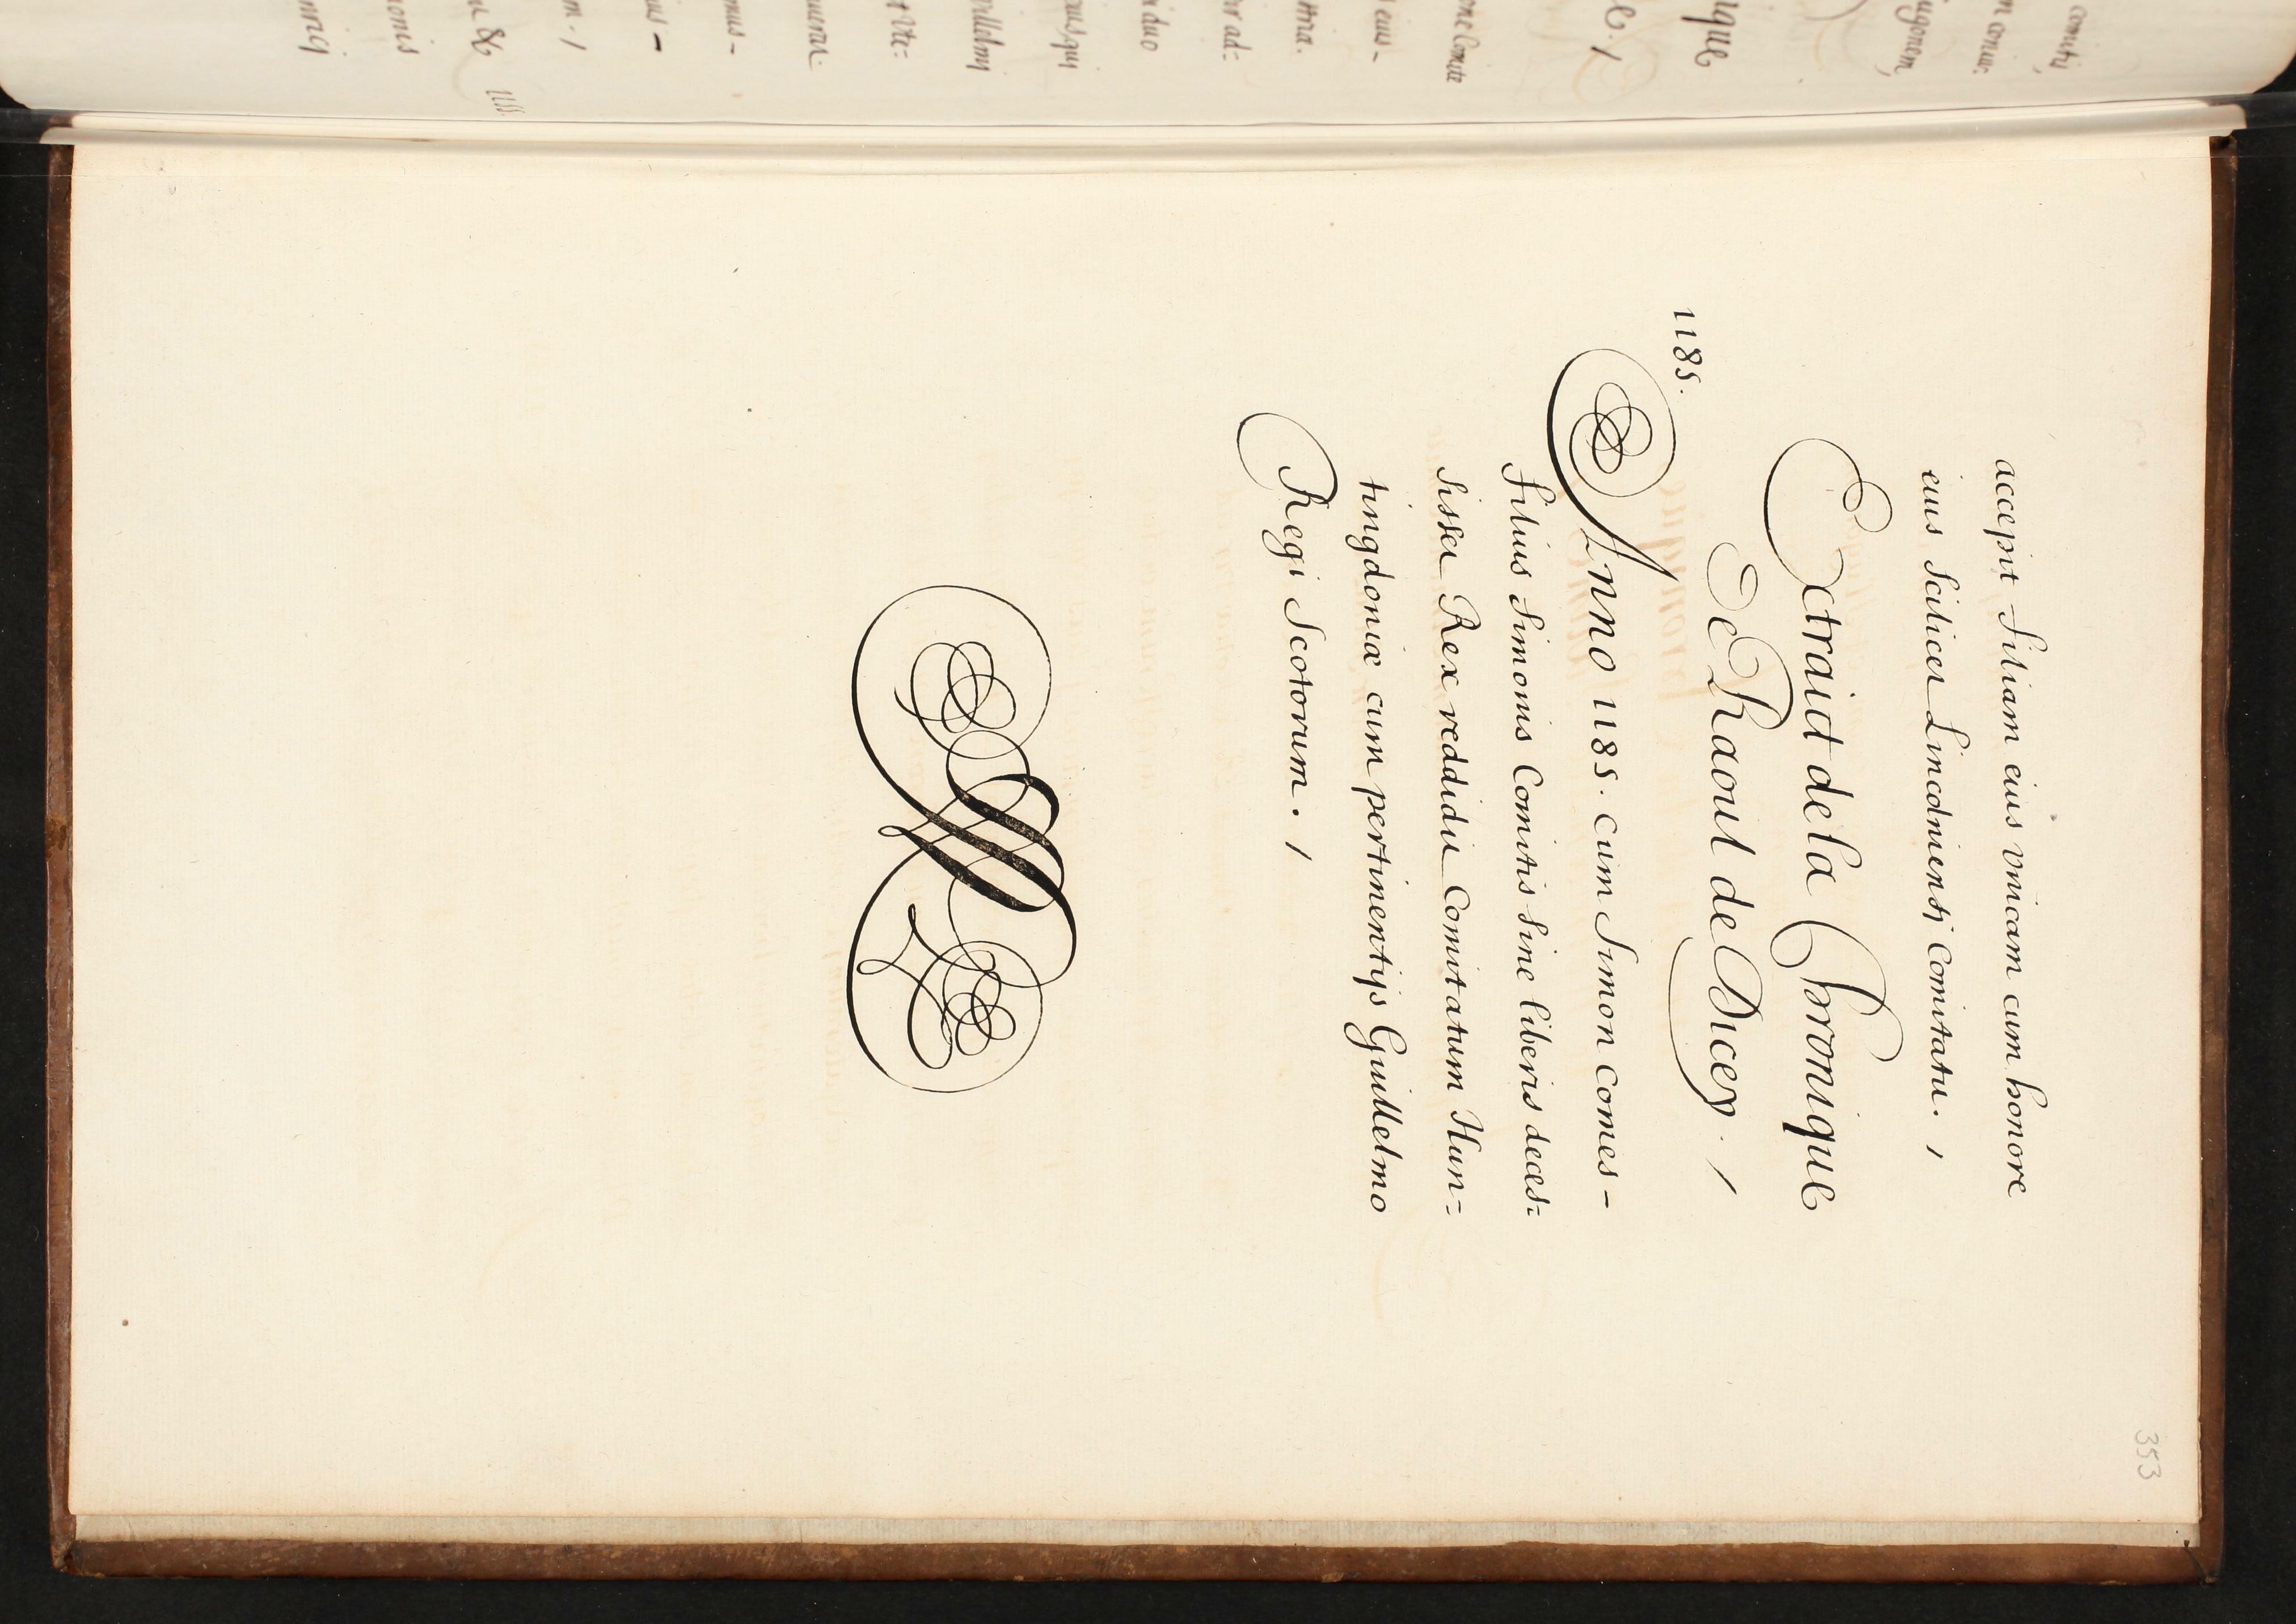 353
accepit filiam eius vnicam cum honore
eius scilicet Lincolniensi comitatu. /
Extraict de la Chronique
De Raoul de Dicey. /
1185.
Anno 1185. cum Simon comes -
filius Simonis Comitis sine liberis deces=
sisset Rex reddidit comitatum Hun=
tingdoniæ cum pertinentijs Guillelmo
Regi Scotorum. /